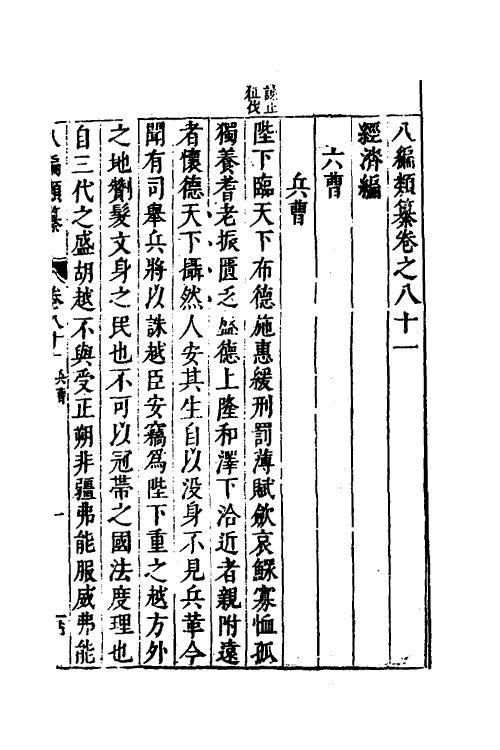 八編類纂卷之八十一
經濟編
六曹
兵曹
諫止
征伐
陛下臨天下布德施惠緩刑罰薄賦斂哀鰥寡恤孤
獨養耆老振匱乏盛德上隆和澤下洽近者親附遠
者懷德天下攝然人安其生自以没身不見兵革今
聞有司舉兵將以誅越臣安竊為陛下重之越方外
之地劗髮文身之民也不可以冠帶之國法度理也
自三代之盛胡越不與受正朔非疆弗能服威弗能
八編類纂 卷八十一 兵曹 一